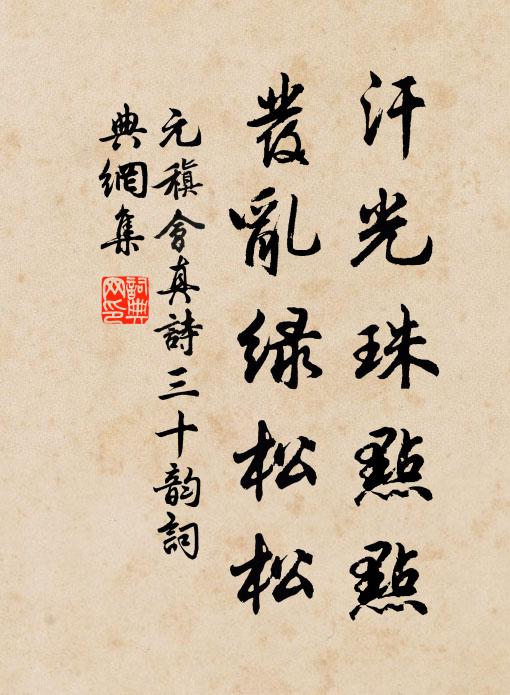 汗光珠點點
發亂綠松松
元稹會真詩三十韵詞
典網集
詞典
网印